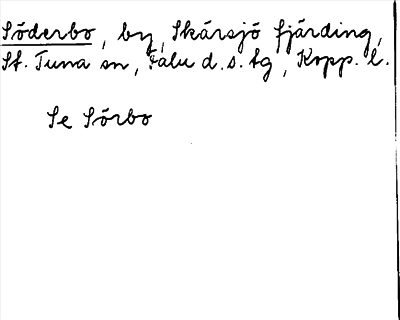 Söderbo, by, Skärsjö fjärding,
St. Tuna sn, Falu d.s. tg, Kopp. l.
Se Sörbo